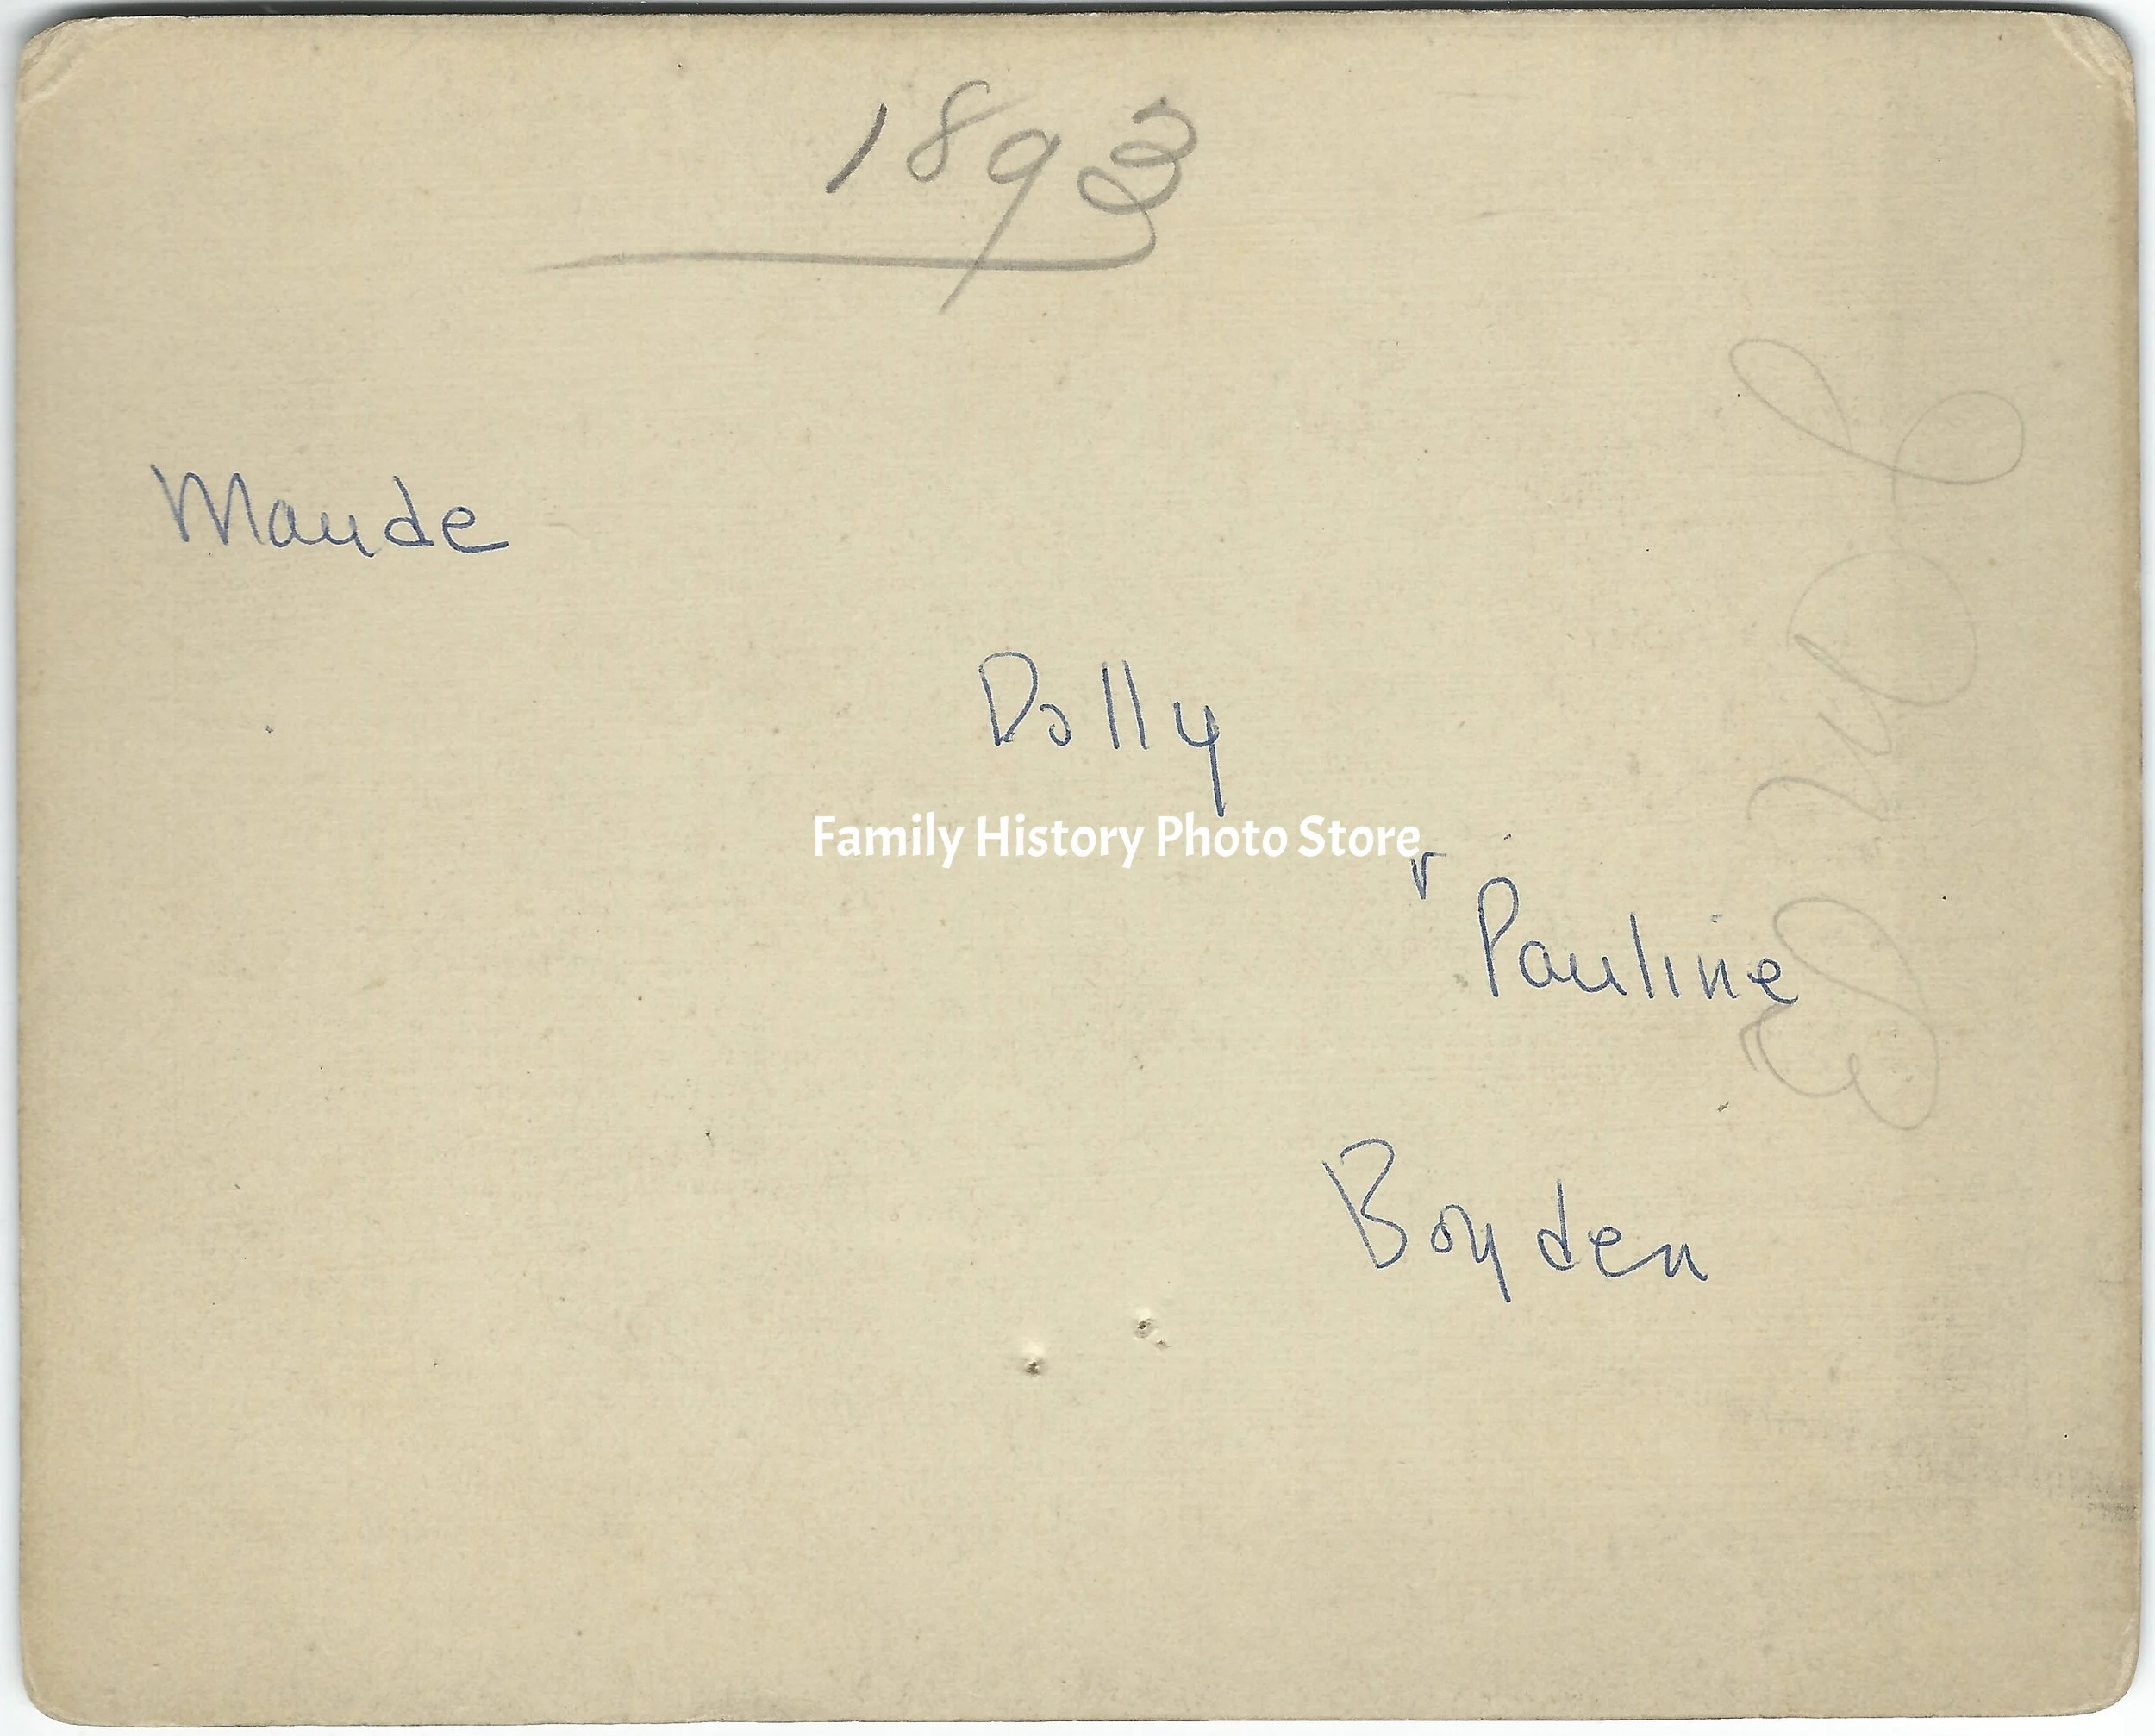 1893
Maude
Dolly
Family History Photo Store
Pauline
Boyden